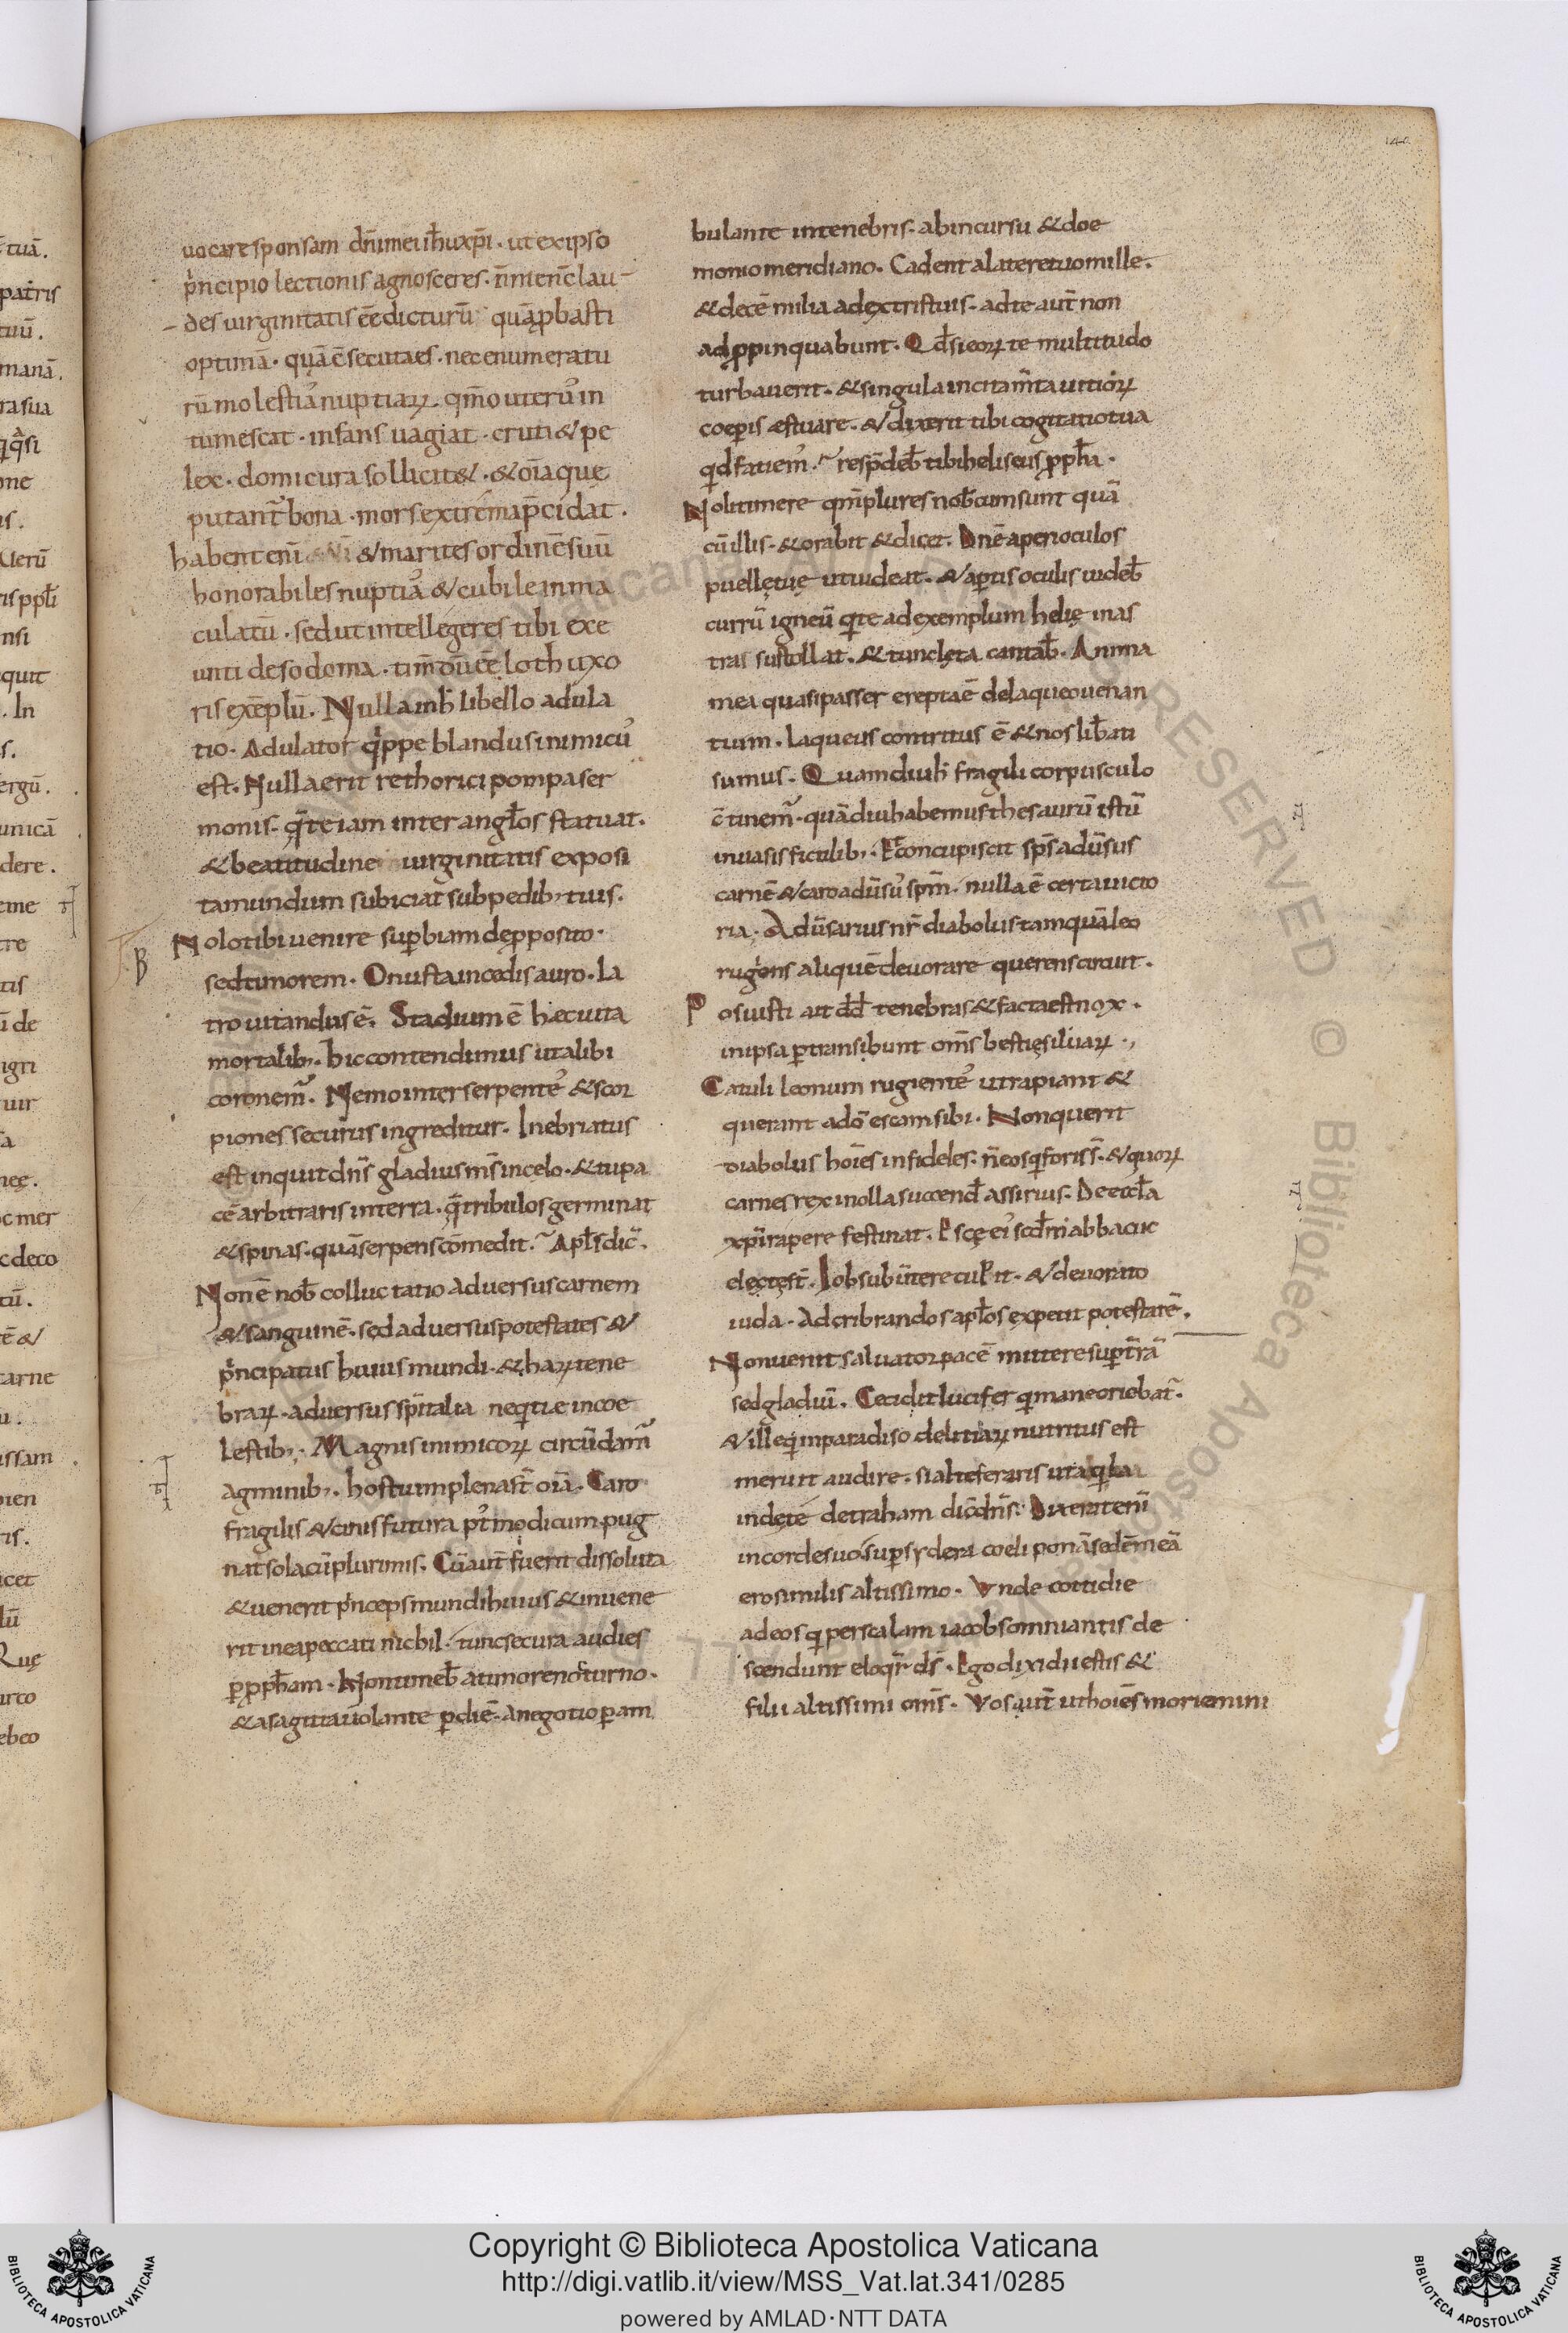 uocare sponsam dñi mei ih̃u xp̃i · ut ex ipso
p̍ncipio lectionis agnosceres · ñ me nc̄ lau
des uirginitatis eē dicturū quā p̱basti
optimā · quā ē secuta es · nec enumeratu
rū molestias nuptiaꝝ · qm̄o uterus in
tumescat · infans uagiat · cruti& pe
lex · domi cura sollicit& · & oīa que
putant̃ bona · mors extrema p̄cidat ·
habent enī & marites ordinē suū
honorabiles nuptias & cubile inma
culatū · sed ut intellegeres tibi exe
unti de sodoma · timdū eē loth uxo
ris exēplū. Nulla in h̃ libello adula
tio · Adulator q̍ppe blandus inimicus
est · Nulla erit rethorici pompa ser
monis · q̄ te iam inter angl̃os statuat ·
& beatitudine uirginitatis exposi
ta mundum subiciat sub pedib; tuis.
Nolo tibi uenire sup̱biam de p̱posito ·
sed timorem · Onusta incedis auro · la
tro uitandus ē. Stadium ē hęc uita
mortalib; · hic contendimus ut alibi
coronem̃. Nemo inter serpentes & scor
piones securus ingreditur. Inebriatus
est inquit dñs gladius m̃s in celo · & tu pa
cē arbitraris in terra · q̄ tribulos germinat
& spinas · quā serpens comedit. Apl̃s dic̃.
Non ē nob̃ colluctatio aduersus carnem
& sanguinē · sed aduersus potestates &
p̍ncipatus huius mundi · & haꝝ tene
braꝝ · aduersus sp̃italia neq̍tiæ in coe
lestib; · Magnis inimicoꝝ circūdam̃
agminib; · hostium plena st̃ oīa · Caro
fragilis & cinis futura p̱t modicum pug
nat sola cū plurimis. Cū aut̃ fuerit dissoluta
& uenerit p̍nceps mundi huius & inuene
rit in ea peccati nichil · tunc secura audies
p̱ p̱ph̃am · Non timeb̃ a timore nocturno ·
& a sagitta uolante p̱ diē · a negotio p̱am
bulante in tenebris · ab incursu & doe
monio meridiano · Cadent a latere tuo mille ·
& decē milia a dextris tuis · ad te aut̃ non
adp̱pinquabunt · Qd̃ si eoꝝ te multitudo
turbauerit · & singula incitam̃ta uitioꝝ
coep̱is æstuare · & dixerit tibi cogitatio tua
q̍d faciem̃ · resp̄deb̃ tibi heliseus p̱ph̃a ·
Noli timere qm̃ plures nob̃cum sunt quā
cū illis · & orabit & dicet · Dnē aperi oculos
puellę tuę ut uideat · & ap̱tis oculis uideb̃
currū igneū q̍ te ad exemplum helię in as
tras sustollat · & tunc lęta cantab̃ · Anima
mea quasi passer erepta ē de laqueo uenan
tium · laqueus contritus ē & nos lib̃ati
sumus · Quamdiu h̃ fragili corpusculo
c̄tinem̃ · quā diu habemus thesaurū istū
in uasis fictilib; · & concupiscit sp̃s adūsus
carnē & caro adūsus spm̃ · nulla ē certa uicto
ria · Adūsarius nr̃ diabolus tamquā leo
rugiens aliquē deuorare querens circuit ·
Posuisti ait dd̃ tenebras & facta est nox ·
in ipsa p̱transibunt om̃s bestię siluaꝝ ·,
Catuli leonum rugientes ut rapiant &
querant a dō escam sibi · Non querit
diabolus hoīes infideles · ñ eos q̍ foris s̃ · & quoꝝ
carnes rex in olla succend̃ assirius · De eccl̃a
xpī rapere festinat · Escę eius scd̃m abbacuc
electę st̃ · Iob subūtere cupit · & deuorato
iuda · Ad cribrandos apl̃os expetit potestatē ·
Non uenit saluator pacē mittere sup̱ t̃rā
sed gladiū. Cecidit lucifer q̍ mane oriebat̃ ·
& ille q̍ in paradiso delitiaꝝ nutritus est
meruit audire · si alte feraris ut aq̍la
inde te detraham dic̃ dñs · Dixerat enī
in corde suo sup̱ sydera coeli ponā sedē meā
ero similis altissimo · Vnde cottidie
ad eos q̍ per scalam iacob somniantis de
scendunt eloq̍r ds̃ · Ego dixi dii estis &
filii altissimi om̃s · Vos aut̃ ut hoīes moriemini
Copyright © Biblioteca Apostolica Vaticana
http://digi.vatlib.it/view/MSS_Vat.lat.341/0285
powered by AMLAD·NTT DATA